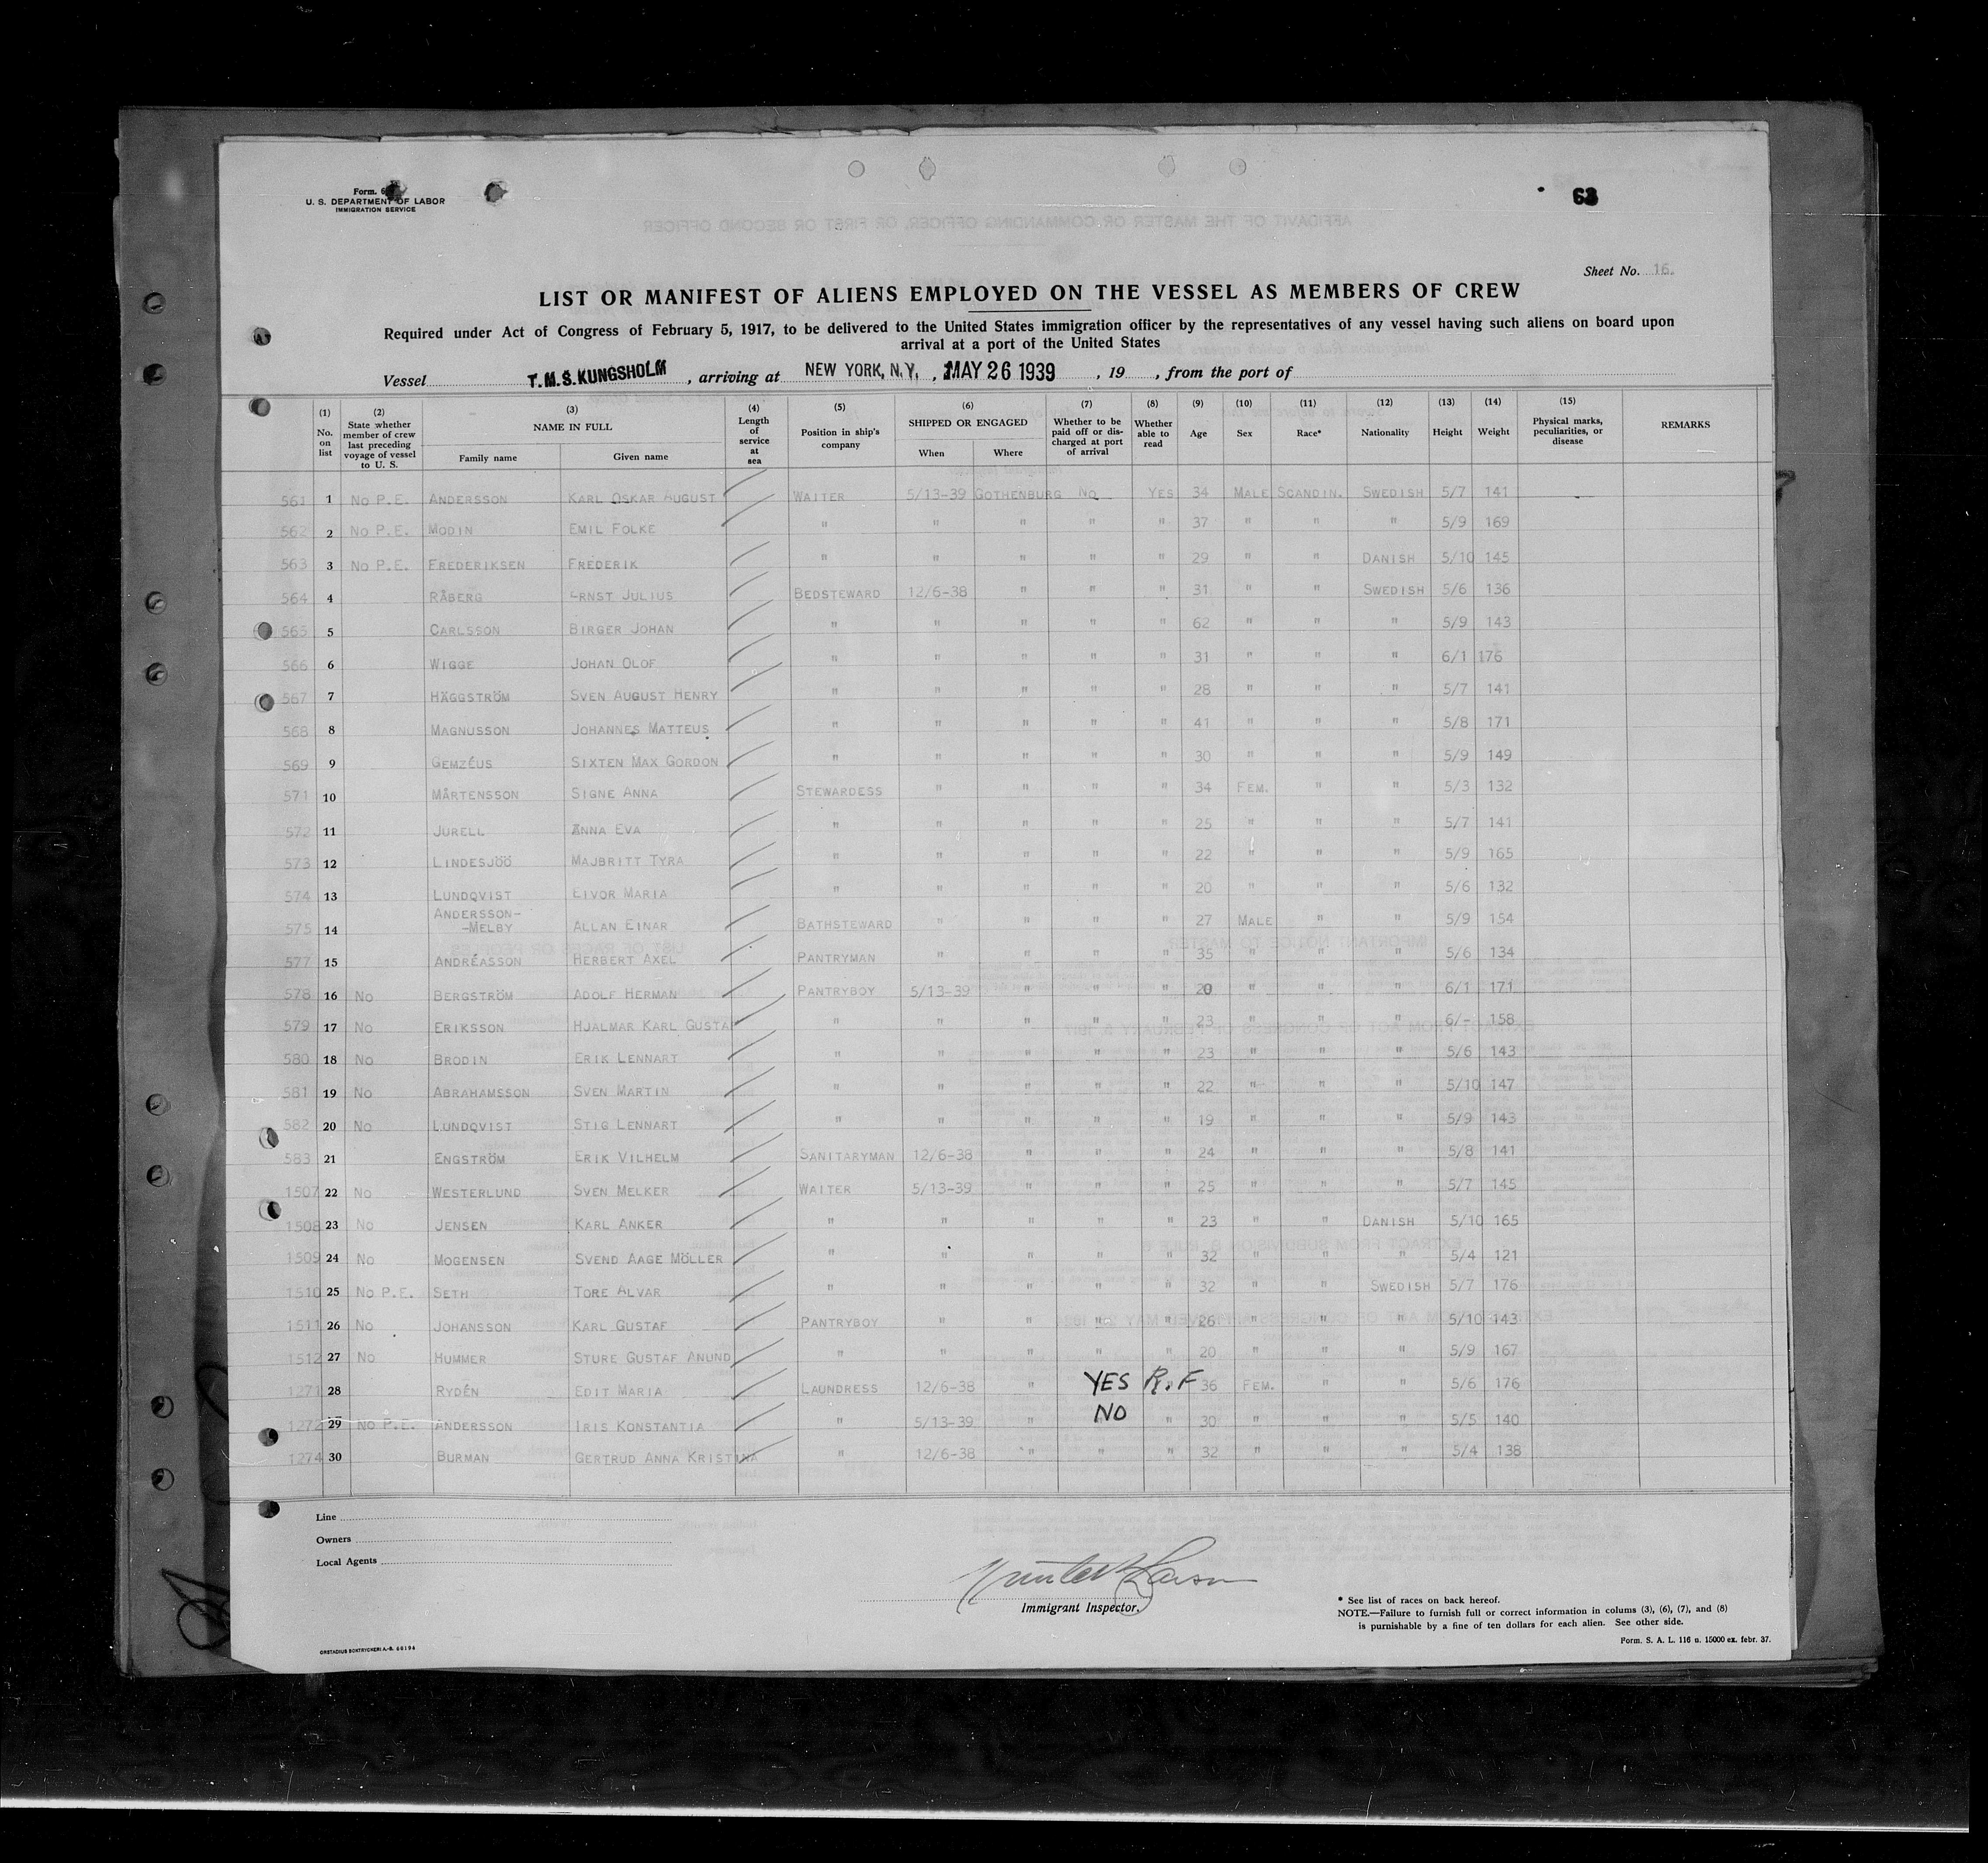 Form. 6
U. S. DEPARTMENT OF LABOR
IMMIGRATION SERVICE
63
Sheet No. 16.
LIST OR MANIFEST OF ALIENS EMPLOYED ON THE VESSEL AS MEMBERS OF CREW
Required under Act of Congress of February 5, 1917, to be delivered to the United States immigration officer by the representatives of any vessel having such aliens on board upon
arrival at a port of the United States
Vessel T.M.S.KUNGSHOLM , arriving at NEW YORK, N.Y. , MAY 26 1939 , 19 , from the port of
(1) No. on list (2) State whether member of crew last preceding voyage of vessel to U. S. (3) NAME IN FULL Family name Given name (4) Length of service at sea (5) Position in ship's company (6) SHIPPED OR ENGAGED When Where (7) Whether to be paid off or discharged at port of arrival (8) Whether able to read (9) Age (10) Sex (11) Race* (12) Nationality (13) Height (14) Weight (15) Physical marks, peculiarities, or disease REMARKS
561 1 NO P.E. ANDERSSON KARL OSKAR AUGUST WAITER 5/13-39 GOTHENBURG NO YES 34 MALE SCANDIN. SWEDISH 5/7 141
562 2 NO P.E. MODIN EMIL FOLKE " " " " " 37 " " " 5/9 169
563 3 NO P.E. FREDERIKSEN FREDERIK " " " " " 29 " " DANISH 5/10 145
564 4 RÅBERG ERNST JULIUS BEDSTEWARD 12/6-38 " " " 31 " " SWEDISH 5/6 136
565 5 CARLSSON BIRGER JOHAN " " " " " 62 " " " 5/9 143
566 6 WIGGE JOHAN OLOF " " " " " 31 " " " 6/1 176
567 7 HÄGGSTRÖM SVEN AUGUST HENRY " " " " " 28 " " " 5/7 141
568 8 MAGNUSSON JOHANNES MATTEUS " " " " " 41 " " " 5/8 171
569 9 GEMZÉUS SIXTEN MAX GORDON " " " " " 30 " " " 5/9 149
571 10 MÅRTENSSON SIGNE ANNA STEWARDESS " " " " 34 FEM. " " 5/3 132
572 11 JURELL ANNA EVA " " " " " 25 " " " 5/7 141
573 12 LINDESJÖÖ MAJBRITT TYRA " " " " " 22 " " " 5/9 165
574 13 LUNDQVIST EIVOR MARIA " " " " " 20 " " " 5/6 132
575 14 ANDERSSON-
-MELBY ALLAN EINAR BATHSTEWARD " " " " 27 MALE " " 5/9 154
577 15 ANDRÉASSON HERBERT AXEL PANTRYMAN " " " " 35 " " " 5/6 134
578 16 NO BERGSTRÖM ADOLF HERMAN PANTRYBOY 5/13-39 " " " 20 " " " 6/1 171
579 17 NO ERIKSSON HJALMAR KARL GUSTA " " " " " 23 " " " 6/- 158
580 18 NO BRODIN ERIK LENNART " " " " " 23 " " " 5/6 143
581 19 NO ABRAHAMSSON SVEN MARTIN " " " " " 22 " " " 5/10 147
582 20 NO LUNDQVIST STIG LENNART " " " " " 19 " " " 5/9 143
583 21 ENGSTRÖM ERIK VILHELM SANITARYMAN 12/6-38 " " " 24 " " " 5/8 141
1507 22 NO WESTERLUND SVEN MELKER WAITER 5/13-39 " " " 25 " " " 5/7 145
1508 23 NO JENSEN KARL ANKER " " " " " 23 " " DANISH 5/10 165
1509 24 NO MOGENSEN SVEND AAGE MÖLLER " " " " " 32 " " " 5/4 121
1510 25 NO P.E. SETH TORE ALVAR " " " " " 32 " " SWEDISH 5/7 176
1511 26 NO JOHANSSON KARL GUSTAF PANTRYBOY " " " " 26 " " " 5/10 143
1512 27 NO HUMMER STURE GUSTAF ANUND " " " " " 20 " " " 5/9 167
1271 28 RYDÉN EDIT MARIA LAUNDRESS 12/6-38 " YES R.F 36 FEM. " " 5/6 176
1272 29 NO P.E. ANDERSSON IRIS KONSTANTIA " 5/13-39 " NO " 30 " " " 5/5 140
1274 30 BURMAN GERTRUD ANNA KRISTINA " 12/6-38 " " " 32 " " " 5/4 138
Line
Owners
Local Agents
Immigrant Inspector.
* See list of races on back hereof.
NOTE.—Failure to furnish full or correct information in colums (3), (6), (7), and (8)
is purnishable by a fine of ten dollars for each alien. See other side.
Form. S. A. L. 116 u. 15000 ex. febr. 37.